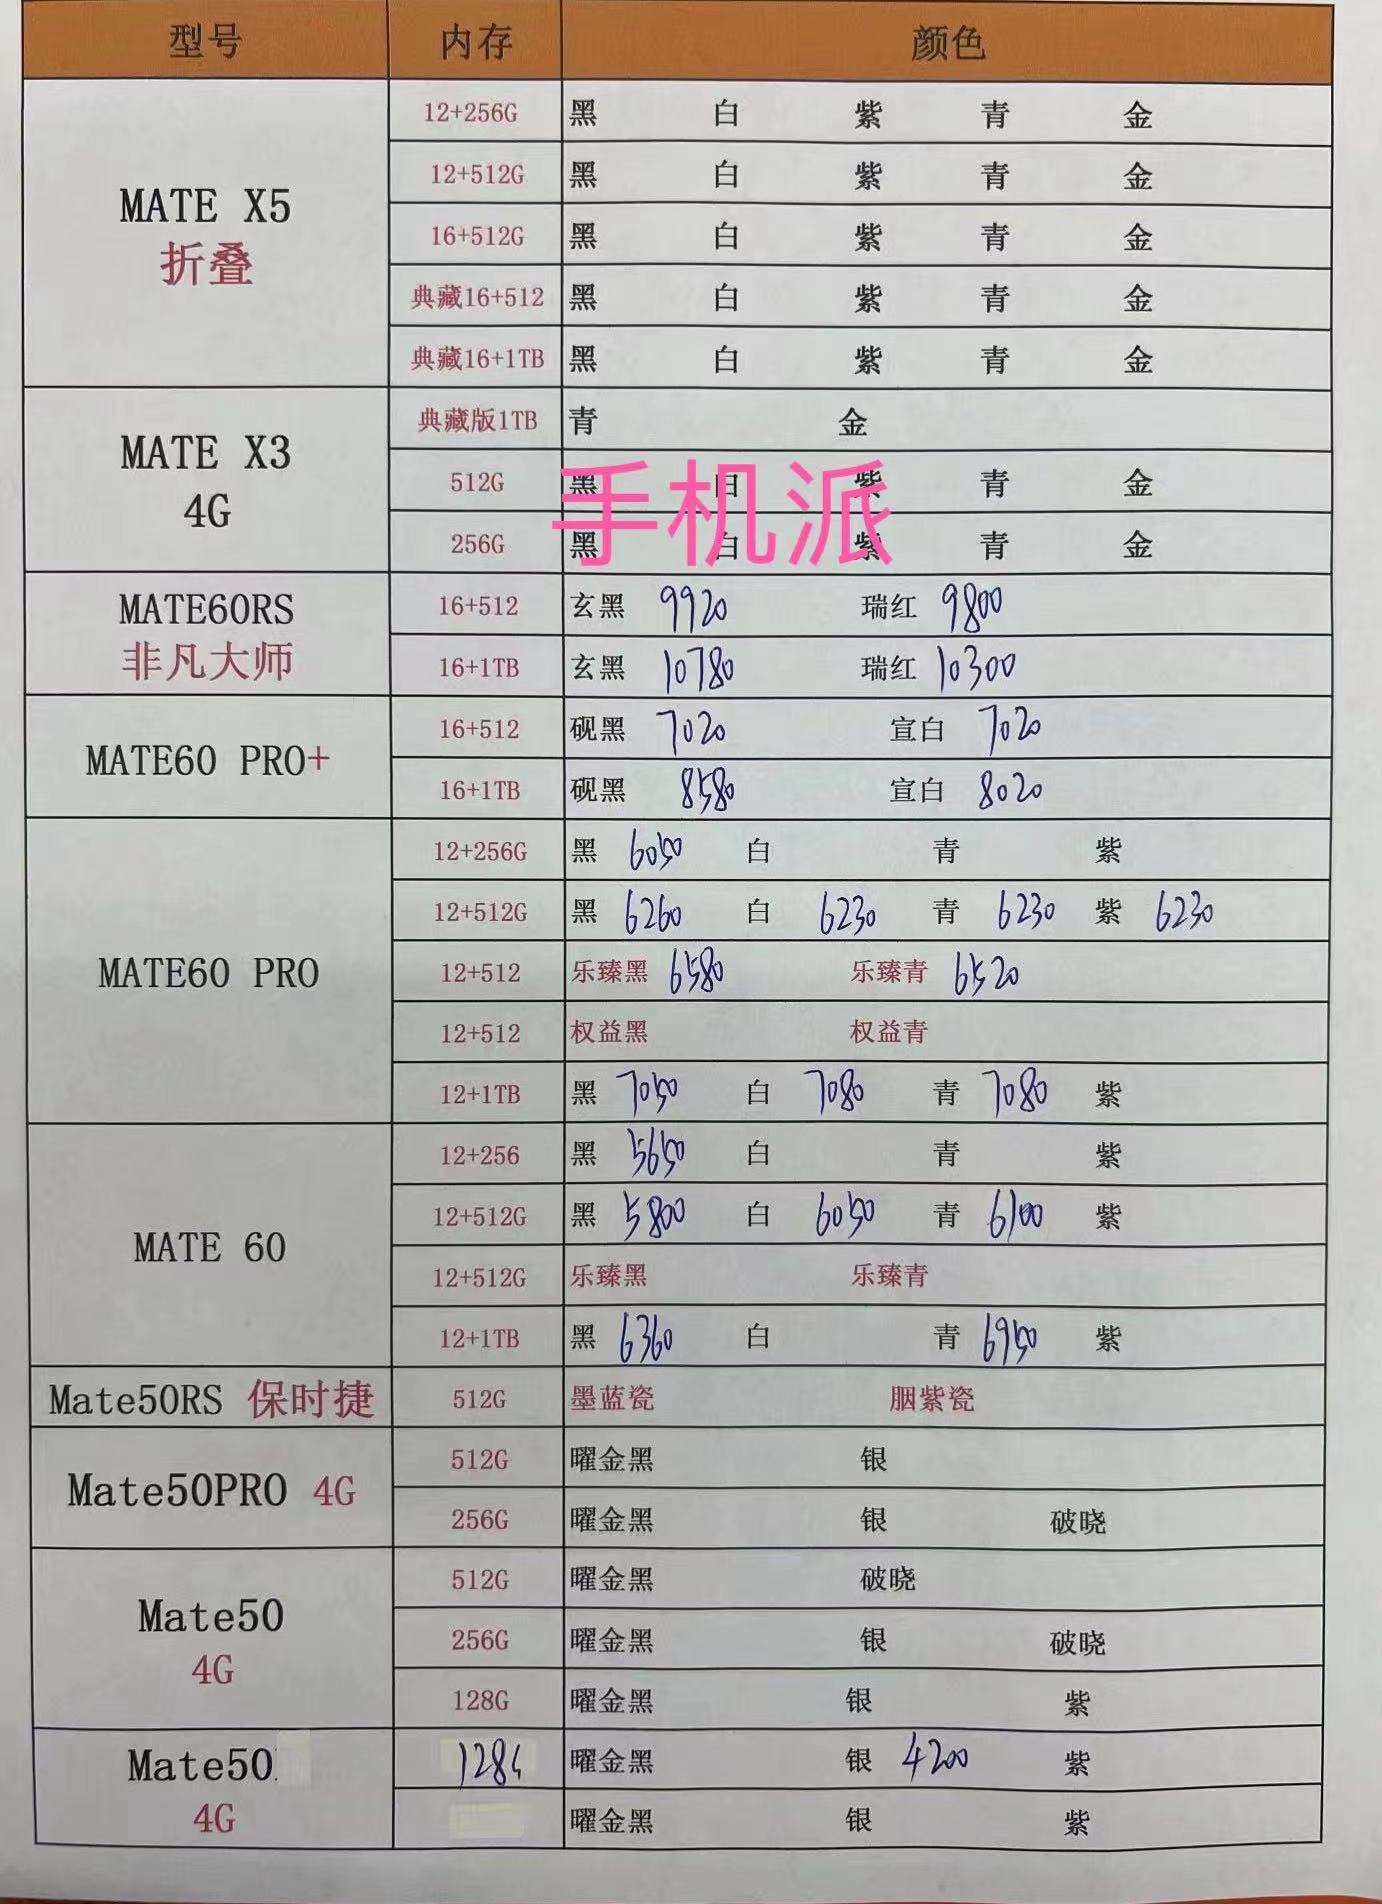 型号 内存 颜色
MATE X5
折叠
12+256G 黑 白 紫 青 金
12+512G 黑 白 紫 青 金
16+512G 黑 白 紫 青 金
典藏16+512 黑 白 紫 青 金
典藏16+1TB 黑 白 紫 青 金
MATE X3
4G
典藏版1TB 青 金
512G 黑 白 紫 青 金
256G 黑 白 紫 青 金
手机派
MATE60RS
非凡大师
16+512 玄黑 9920 瑞红 9800
16+1TB 玄黑 10780 瑞红 10300
MATE60 PRO+
16+512 砚黑 7020 宣白 7020
16+1TB 砚黑 8580 宣白 8020
MATE60 PRO
12+256G 黑 6050 白 青 紫
12+512G 黑 6260 白 6230 青 6230 紫 6230
12+512 乐臻黑 6580 乐臻青 6520
12+512 权益黑 权益青
12+1TB 黑 7050 白 7080 青 7080 紫
MATE 60
12+256 黑 5650 白 青 紫
12+512G 黑 5800 白 6050 青 6100 紫
12+512G 乐臻黑 乐臻青
12+1TB 黑 6360 白 青 6950 紫
Mate50RS 保时捷 512G 墨蓝瓷 胭紫瓷
Mate50PRO 4G
512G 曜金黑 银
256G 曜金黑 银 破晓
Mate50
4G
512G 曜金黑 破晓
256G 曜金黑 银 破晓
128G 曜金黑 银 紫
Mate50
4G
128G 曜金黑 银 4200 紫
曜金黑 银 紫